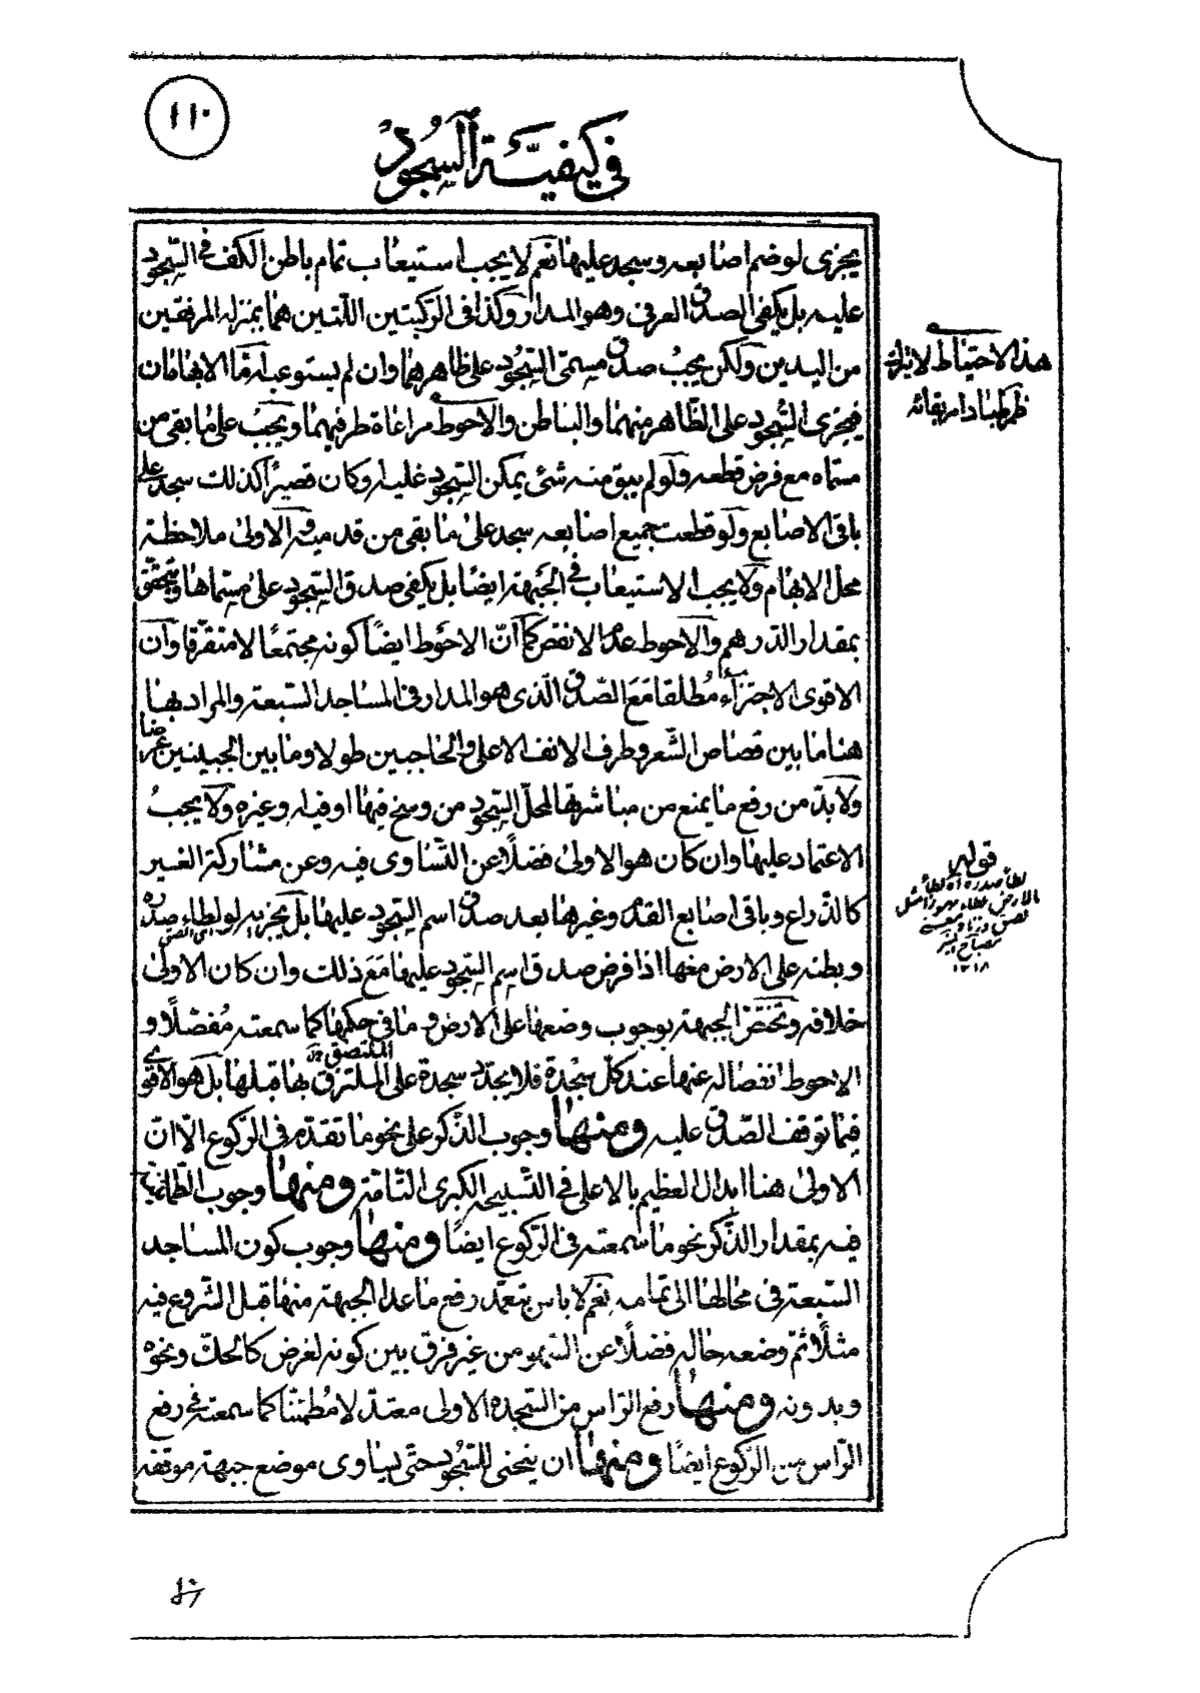 ١١٠
في كيفيّة السجود
يجزى لو ضم اصابعه وسجد عليها نعم لا يجب استيعاب تمام باطن الكف فى السّجود
عليه بل يكفى الصدق العرفى وهو المدار وكذا فى الرّكبتين اللّتين هما بمنزلة المرفقين
من اليدين ولكن يجبُ صدق مسمّى السّجود على ظاهرهما وان لم يستوعبه امّا الابهامان
فيجزى السّجود على الظّاهر منهما والباطن والاحوط مراعاة طرفيهما ويجبُ على ما بقى من
مسمّاه مع فرض قطعه ولو لم يبق منه شئ يمكن السّجود عليه او كان قصيرًا كذلك سجد على
باقى الاصابع ولو قطعت جميع اصابعه سجد على ما بقى من قدميه والاولىٰ ملاحظة
محلّ الابهام ولا يجب الاستيعاب فى الجَبهة ايضًا بل يكفى صدق السّجود على مسمّاها ويتحقّق
بمقدار الدّرهم والاحوط عدم الانقص كما انّ الاحوط ايضًا كونه مجتمعًا لا متفرّقا وان
الاقوى الاجتزاء به مُطلقا مَعَ الصّدق الّذى هو المدار فى المساجد السّبعة والمراد بها
هنا ما بين قصاص الشّعر وطرف الانف الاعلى والحاجبين طولا وما بين الجبينين عرضا
ولا بدّ من رفع ما يمنع من مباشرتها لمحلّ السّجود من وسخ فيها او فيه وغيره ولا يجبُ
الاعتماد عليها وان كان هو الاولىٰ فضلًا عن التّساوى فيه وعن مشاركة الغير
كالذّراع وباقى اصابع القدم وغيرها بعد صدق اسم السّجود عليها بل يجزيه لو لطاء صدره
اى الصق
وبطنه على الارض معها اذا فرض صدق اسم السّجود عليها مَعَ ذلك وان كان الاولىٰ
خلافه وتختصّ الجبهة بوجوب وضعها على الارض وما فى حكمها كما سمعته مُفصّلًا و
الاحوط انفصاله عنها عند كلّ سجْدة فلا يجدّد سجدة على الملتزق بها قبلها بل هو الاقوى
الملتصق
فيما توقف الصّدق عليه ومنها وجوب الذّكر على نحو ما تقدّم فى الرّكوع الّا انّ
الاولىٰ هنا ابدال العظيم بالاعلى فى التّسبيحة الكبرى التّامّة ومنها وجوب الطّمانينة
فيه بمقدار الذّكر نحو ما سمعته فى الرّكوع ايضًا ومنها وجوب كون المساجد
السّبعة فى محالها الى تمامه نعم لا باس بتعمّد رفع ما عدا الجبهة منها قبل الشّروع فيه
مثلًا ثمّ وضعه حاله فضلًا عن السّهو من غير فرق بين كونه لغرض كالحكّ ونحوه
وبدونه ومنها رفع الرّاس من السّجدة الاولى معتدلا مُطمئنّا كما سمعته فى رفع
الرّاس من الرّكوع ايضًا ومنها ان ينحنى للسّجود حتّى يساوى موضع جبهته موقفه
هذا الاحتياط لا يترك
قوله
لطأ صدره
بالارض
مصباح المنير